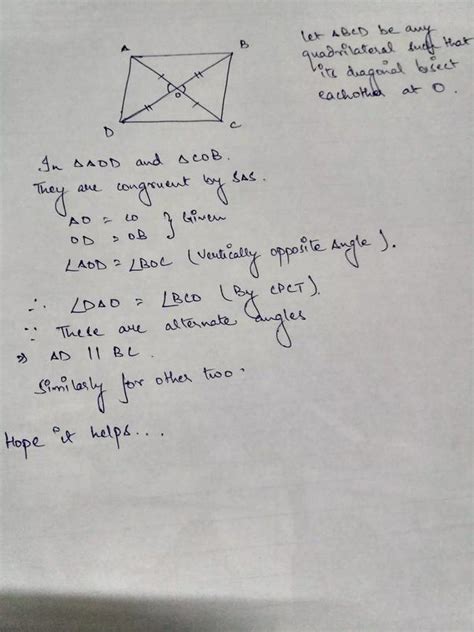 A B
D C
O
Let ABCD be any
quadrilateral such that
its diagonal bisect
eachother at O.
In ΔAOD and ΔCOB.
They are congruent by SAS.
AO = CO } Given
OD = OB
∠AOD = ∠BOC (Vertically opposite Angle).
∴ ∠DAO = ∠BCO (By CPCT).
∵ These are alternate angles
⇒ AD || BC.
Similarly for other two.
Hope it helps...